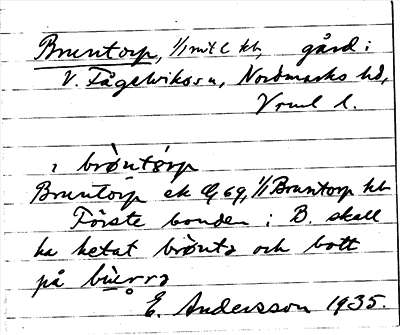 Bruntorp, 1/1 mtl kr, gård i
V. Fågelviks sn, Nordmarks hd,
Vrml l.
i brò̀ntórp
Bruntorp ek G 69, 1/1 Bruntorp kr
Förste bonden i B. skall
ha hetat brò̀nt och bott
på
E. Andersson 1935.